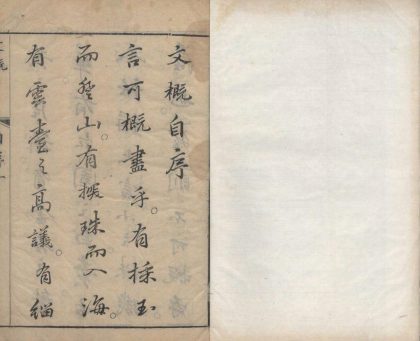 文概自序
言可概盡乎。有採玉
而登山。有掇珠而入海。
有雲臺之高議。有緇